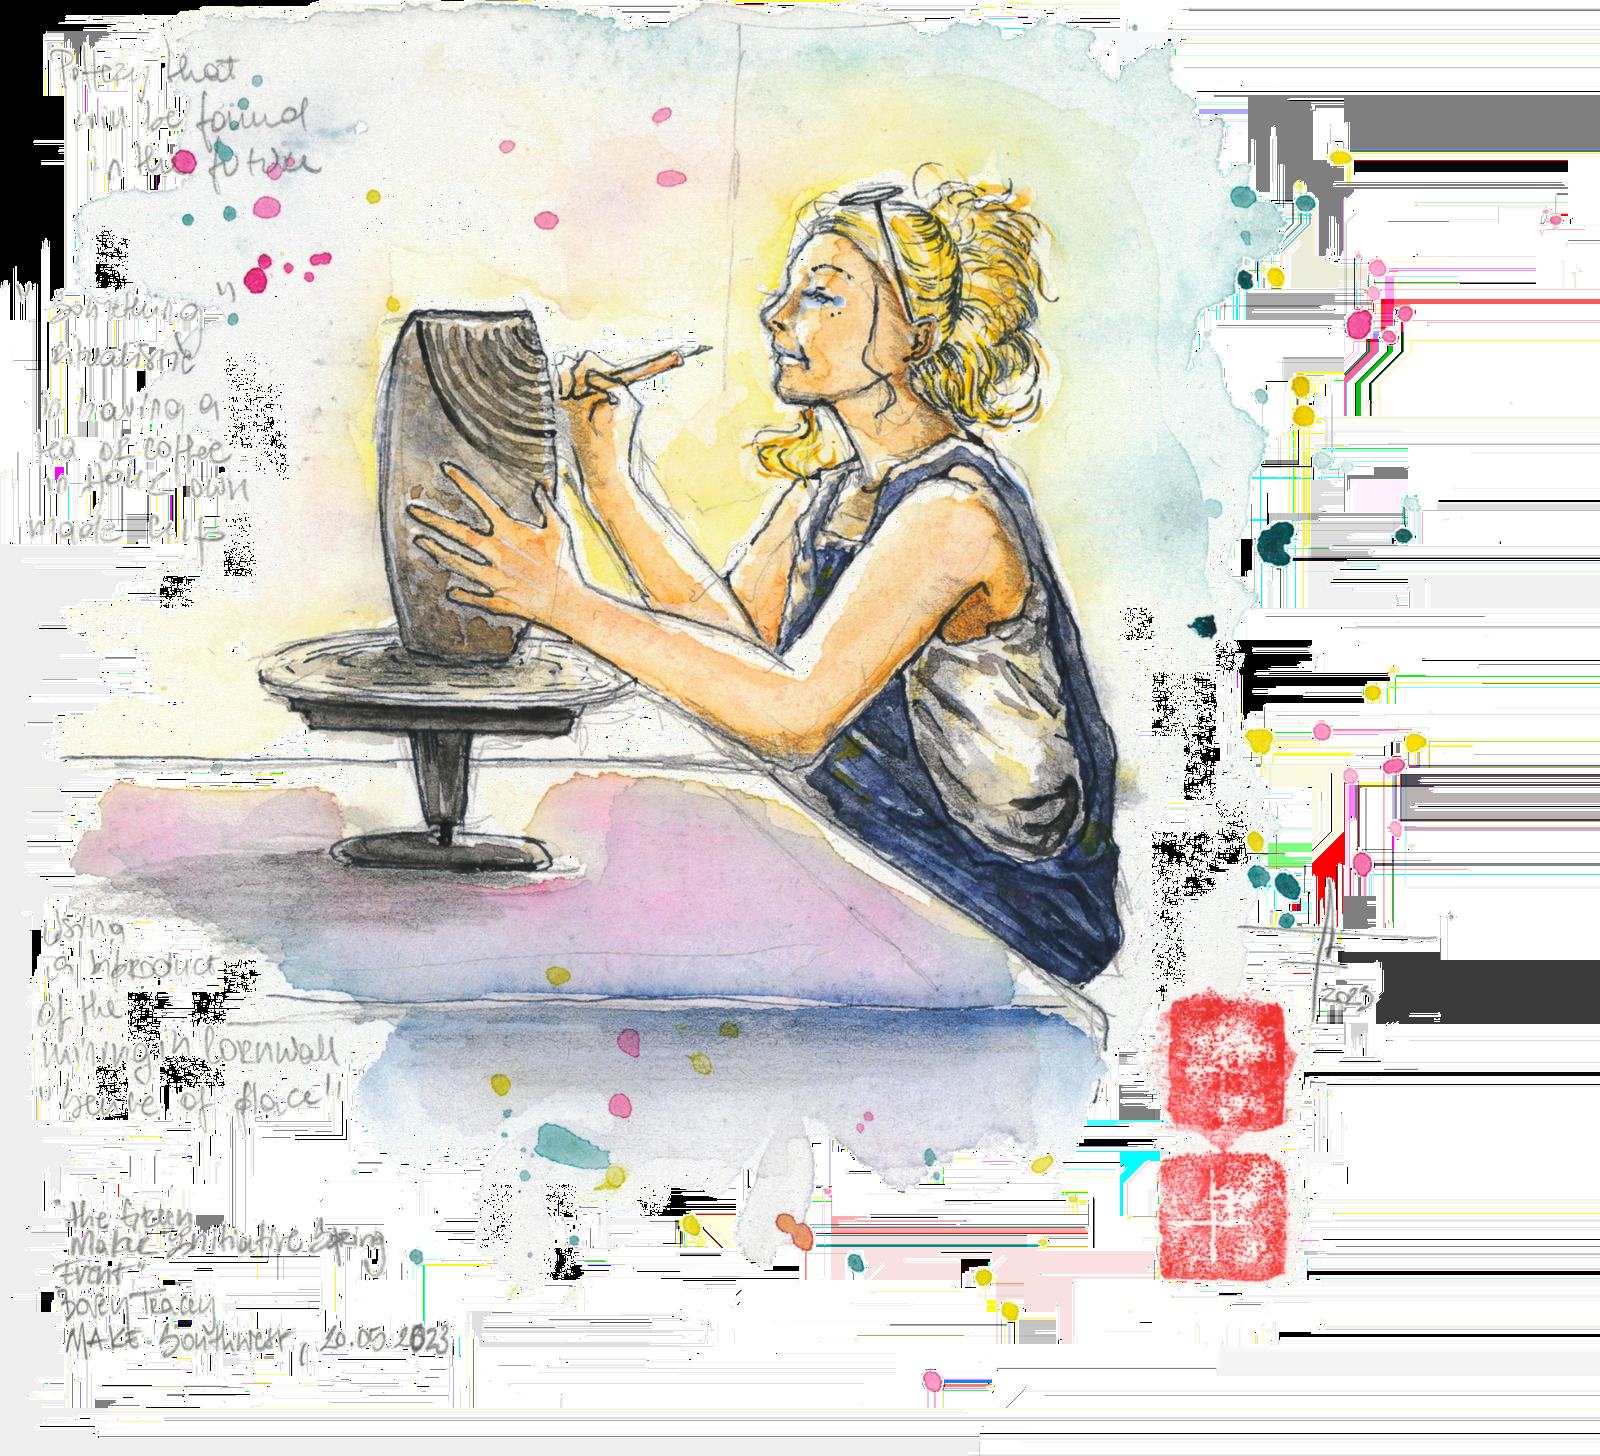 Pottery that
will be found
in the future
"Something
ritualistic
in having a
tea or coffee
in your own
made cup"
Using
a biproduct
of the
mining in Cornwall
"sense of place"
The Green
Maker Initiative Spring
Event
Bovey Tracey
MAKE Southwest, 20.05.2023
2023